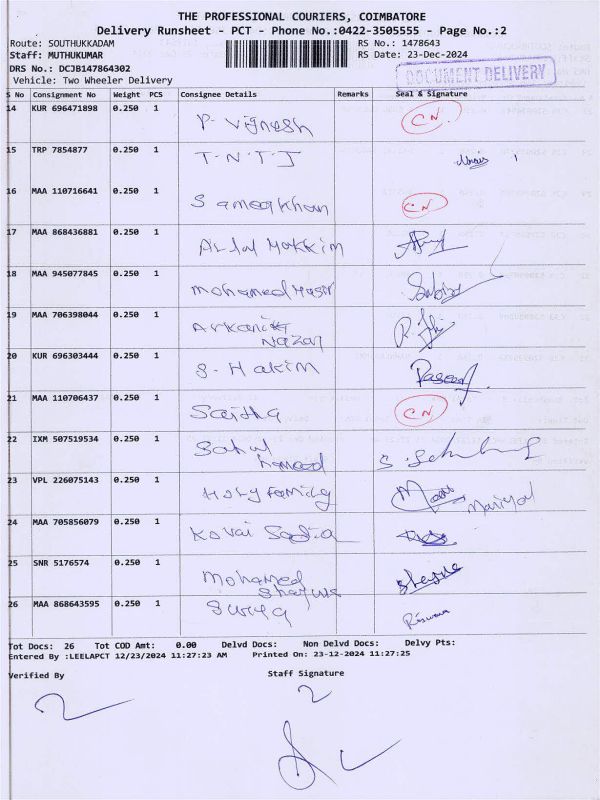 THE PROFESSIONAL COURIERS, COIMBATORE
Delivery Runsheet - PCT - Phone No.:0422-3505555 - Page No.:2
Route: SOUTHUKKADAM RS No.: 1478643
Staff: MUTHUKUMAR RS Date: 23-Dec-2024
DRS No.: DCJB147864302
Vehicle: Two Wheeler Delivery
DOCUMENT DELIVERY
S No Consignment No Weight PCS Consignee Details Remarks Seal & Signature
14 KUR 696471898 0.250 1 P. Vignesh CN
15 TRP 7854877 0.250 1 T.N.T.J
16 MAA 110716641 0.250 1 Sameerkhan CN
17 MAA 868436881 0.250 1
18 MAA 945077845 0.250 1 Mohamed
19 MAA 706398044 0.250 1 Nazar
20 KUR 696303444 0.250 1 S. Hakim
21 MAA 110706437 0.250 1 CN
22 IXM 507519534 0.250 1
23 VPL 226075143 0.250 1 Holy Family
24 MAA 705856079 0.250 1 Kovai
25 SNR 5176574 0.250 1 Mohamed
26 MAA 868643595 0.250 1 Suriya
Tot Docs: 26 Tot COD Amt: 0.00 Delvd Docs: Non Delvd Docs: Delvy Pts:
Entered By :LEELAPCT 12/23/2024 11:27:23 AM Printed On: 23-12-2024 11:27:25
Verified By Staff Signature